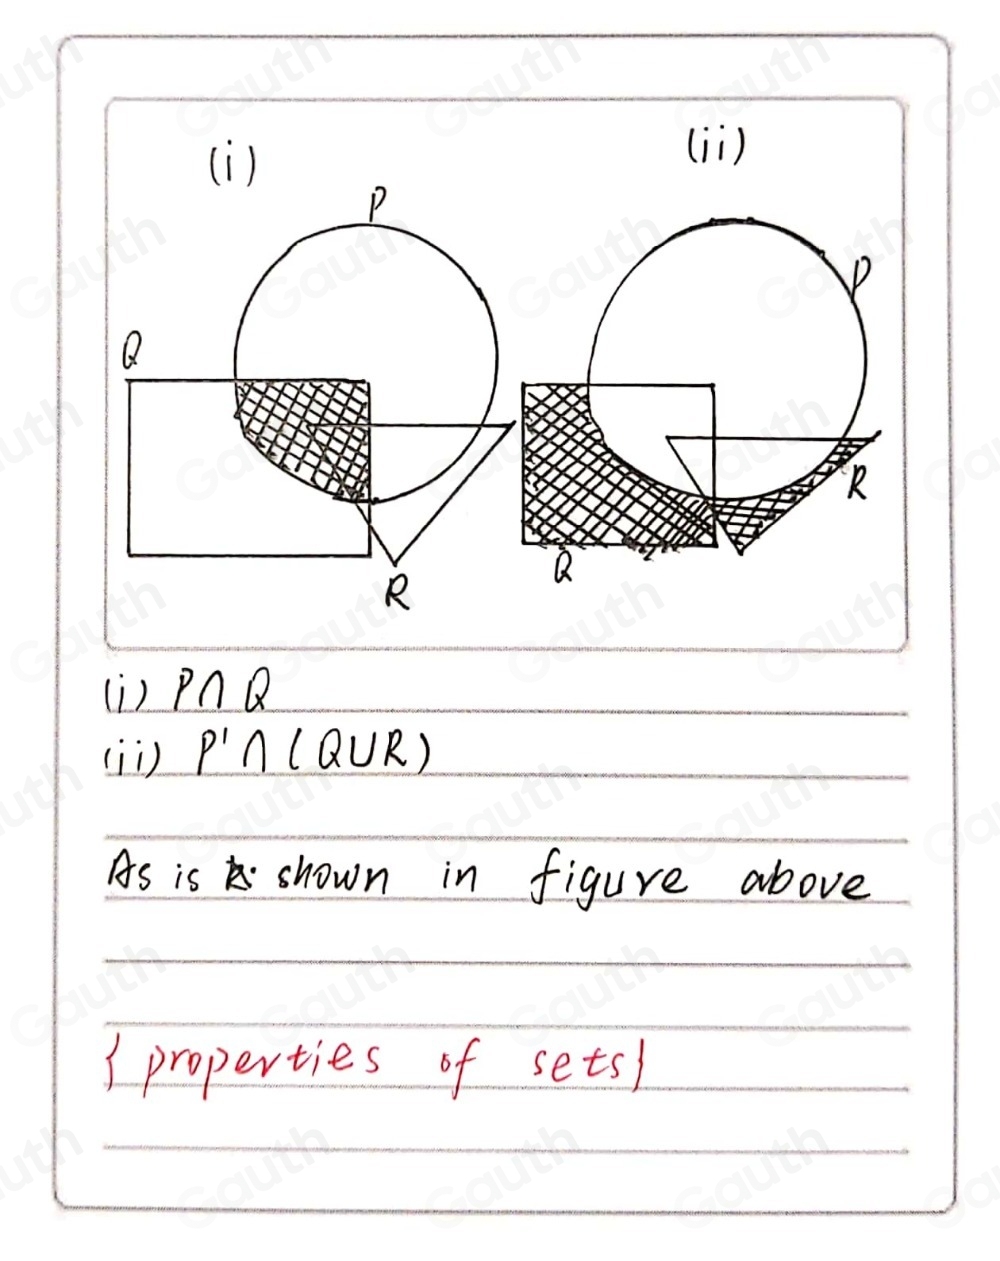 (i) (ii)
P
P
Q
R
Q
R
(i) P∩Q
(ii) P'∩(QUR)
As is shown in figure above
{properties of sets}